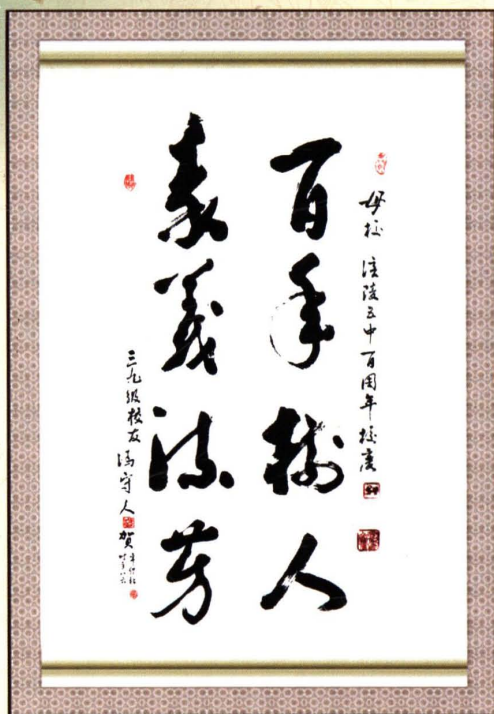 母校 涪陵五中百周年校庆
百年樹人
義流芳
三九级校友 守人 贺